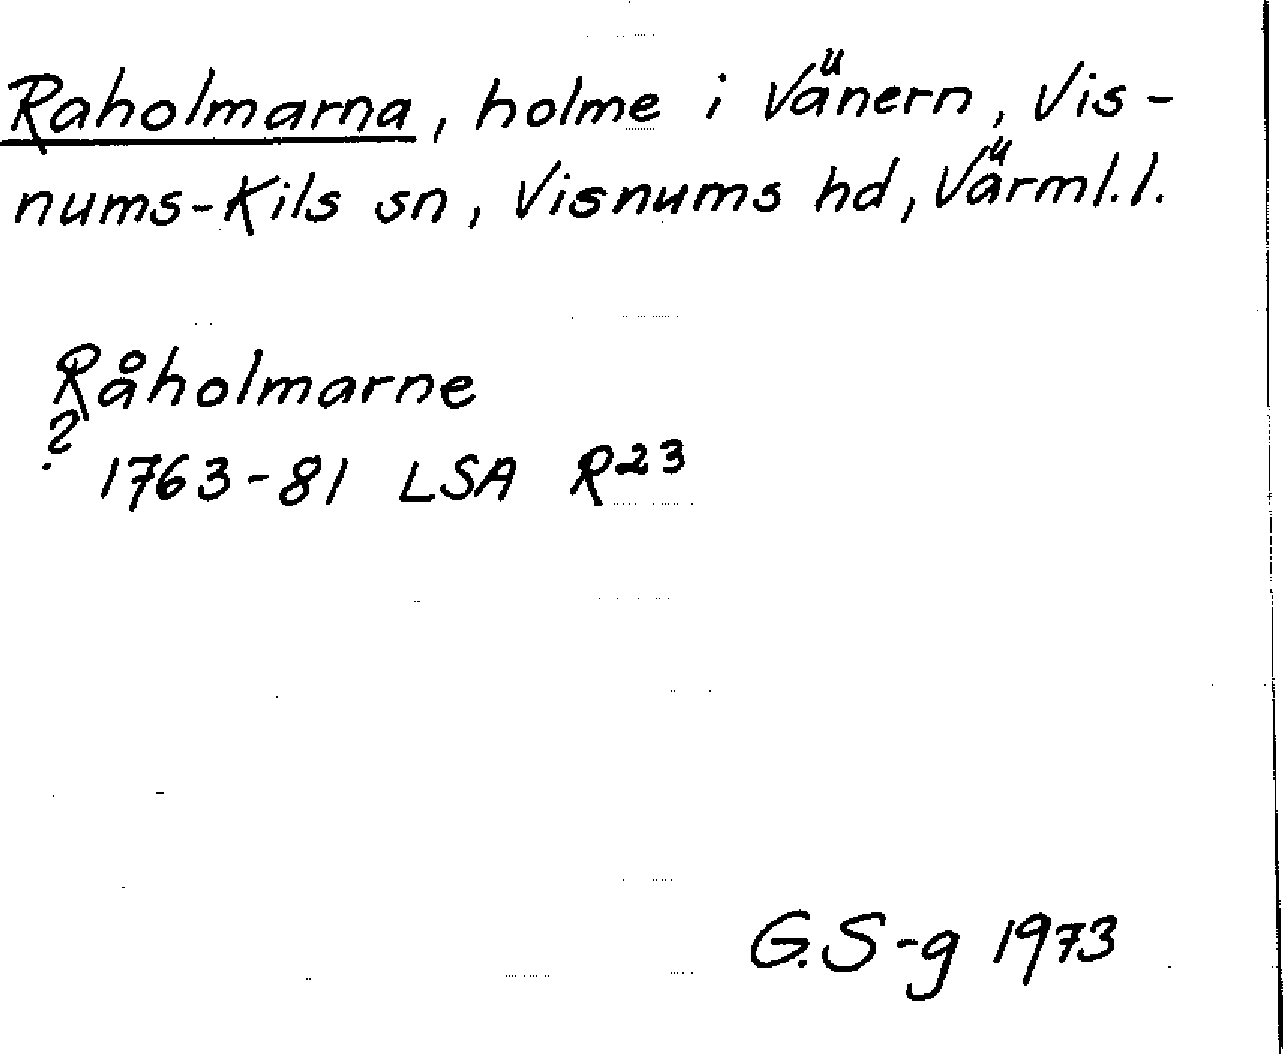 Raholmarna, holme i Vänern, Vis-
nums-Kils sn, Visnums hd, Värml.l.
Råholmarne
? 1763-81 LSA R23
G.S-g 1973